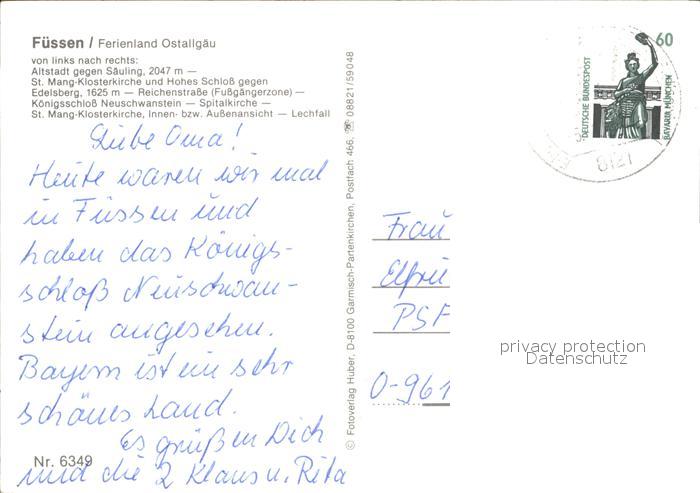 Füssen / Ferienland Ostallgäu
von links nach rechts:
Altstadt gegen Säuling, 2047 m —
St. Mang-Klosterkirche und Hohes Schloß gegen
Edelsberg, 1625 m — Reichenstraße (Fußgängerzone) —
Königsschloß Neuschwanstein — Spitalkirche —
St. Mang-Klosterkirche, Innen- bzw. Außenansicht — Lechfall
Liebe Oma!
Heute waren wir mal
in Füssen und
haben das Königs-
schloß Neuschwan-
stein angesehen.
Bayern ist ein sehr
schönes Land.
Es grüßen Dich
und die 2 Klaus u. Rita
Nr. 6349
© Fotoverlag Huber, D-8100 Garmisch-Partenkirchen, Postfach 466, ☏ 08821/59048
60
DEUTSCHE BUNDESPOST
BAVARIA MÜNCHEN
8121
Frau
Elfrie
PSF
O-961
privacy protection
Datenschutz